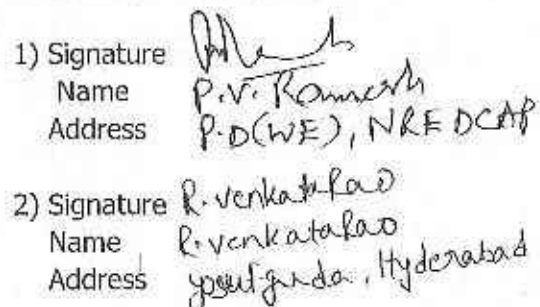 1) Signature
Name P.V. Ramesh
Address P.D(WE), NREDCAP
2) Signature R. Venkata Rao
Name R. Venkata Rao
Address yousufguda, Hyderabad